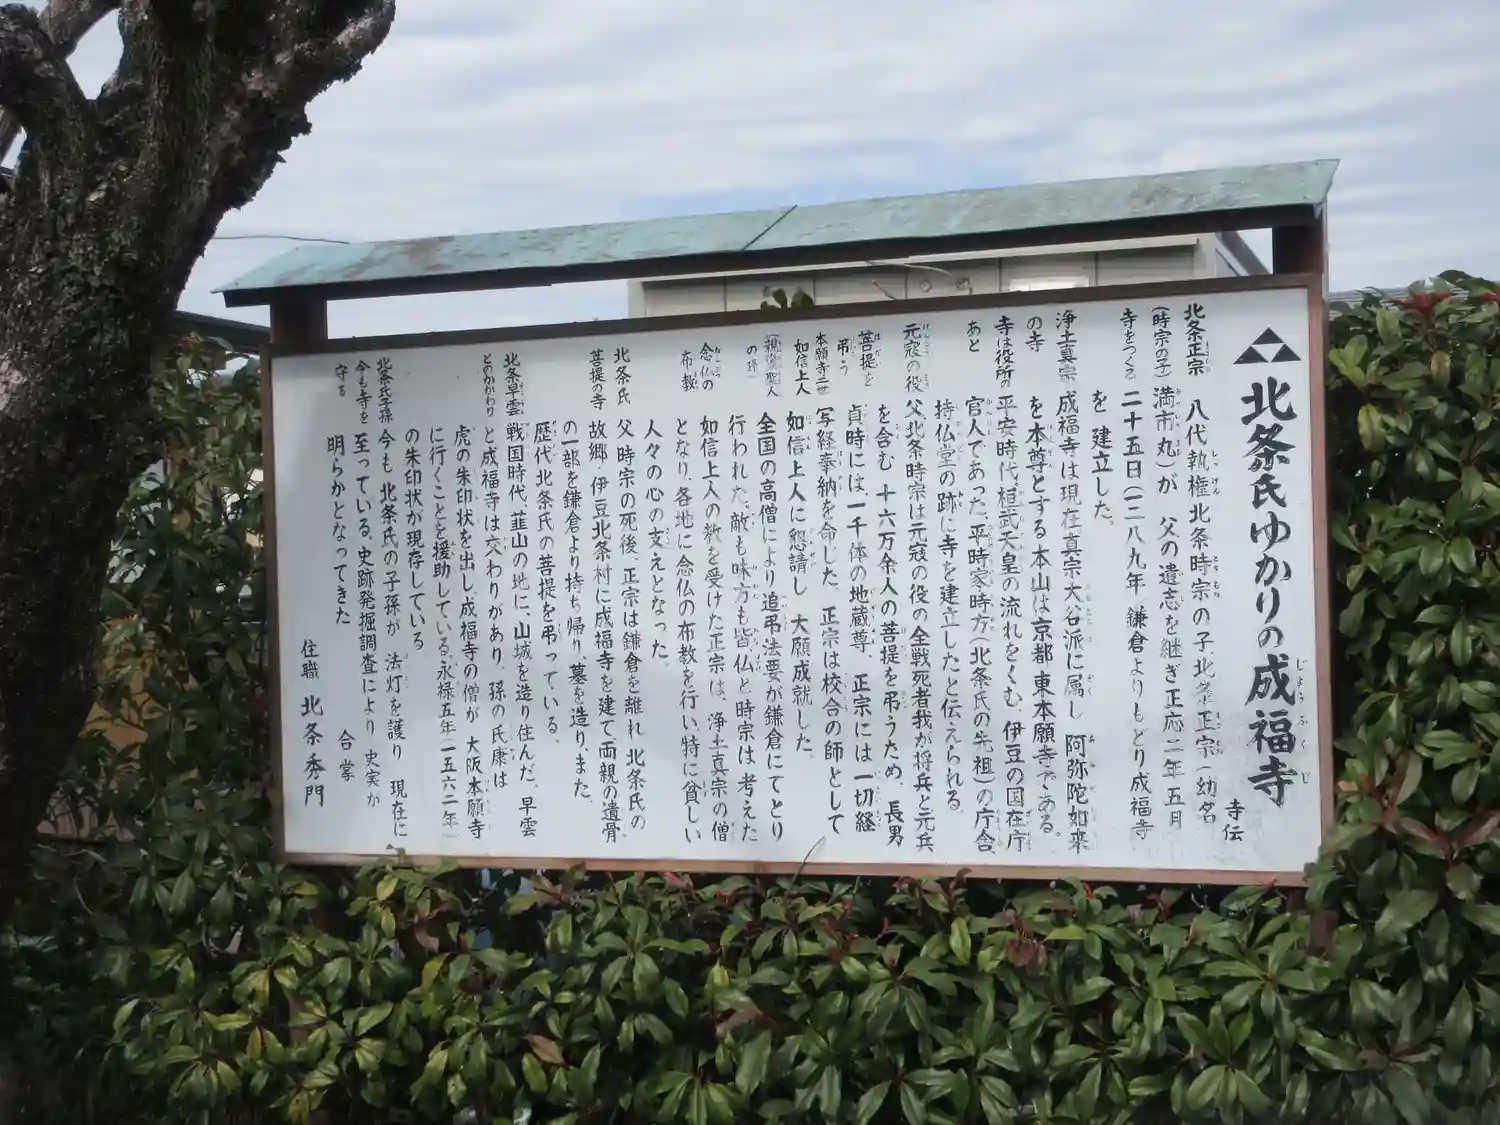 北条氏ゆかりの成福寺
じょうふくじ
寺伝
北条正宗
(時宗の子)
寺をつくる
八代執権北条時宗の子、北条正宗(幼名
満市丸)が 父の遺志を継ぎ正応二年五月
二十五日(一二八九年 鎌倉よりもどり成福寺
を 建立した。
浄土真宗
の寺
成福寺は現在真宗大谷派に属し 阿弥陀如来
を本尊とする本山は京都 東本願寺である。
寺は役所の
あと
平安時代桓武天皇の流れをくむ、伊豆の国在庁
官人であった、平時家時方(北条氏の先祖)の庁舎、
持仏堂の跡に寺を建立したと伝えられる。
元寇の役
父北条時宗は元寇の役の全戦死者我が将兵と元兵
菩提を
弔う
を含む 十六万余人の菩提を弔うため、長男
貞時には、一千体の地蔵尊 正宗には一切経
本願寺二世
如信上人
写経奉納を命じた。正宗は校合の師として
如信上人に懇請し 大願成就した。
(親鸞聖人
の孫)
全国の高僧により追弔法要が鎌倉にてとり
行われた。敵も味方も皆仏と時宗は考えた
念仏の
布教
如信上人の教を受けた正宗は、浄土真宗の僧
となり、各地に念仏の布教を行い特に貧しい
人々の心の支えとなった。
北条氏
菩提の寺
父時宗の死後、正宗は鎌倉を離れ 北条氏の
故郷・伊豆北条村に成福寺を建て両親の遺骨
の一部を鎌倉より持ち帰り、墓を造り、また、
歴代北条氏の菩提を弔っている、
北条早雲
とのかかわり
戦国時代、韮山の地に、山城を造り住んだ、早雲
と成福寺は交わりがあり、孫の氏康は
虎の朱印状を出し成福寺の僧が 大阪本願寺
に行くことを援助している。永禄五年(一五六二年)
の朱印状が現存している
北条氏子孫
今も寺を
守る
今も 北条氏の子孫が 法灯を護り 現在に
至っている。史跡発掘調査により 史実が
明らかとなってきた
合掌
住職 北条秀門